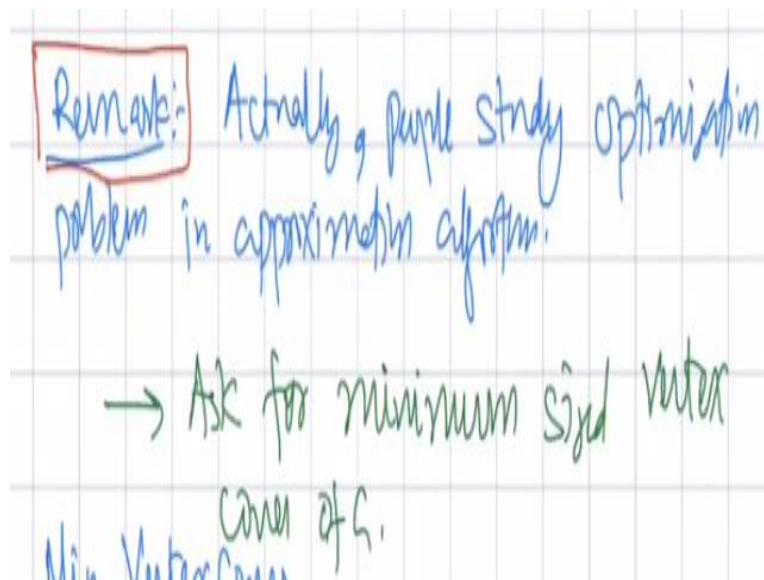 Remark:- Actually, people study optimization
problem in approximation algorithm.
→ Ask for minimum sized vertex
cover of G.
Min Vertex Cover